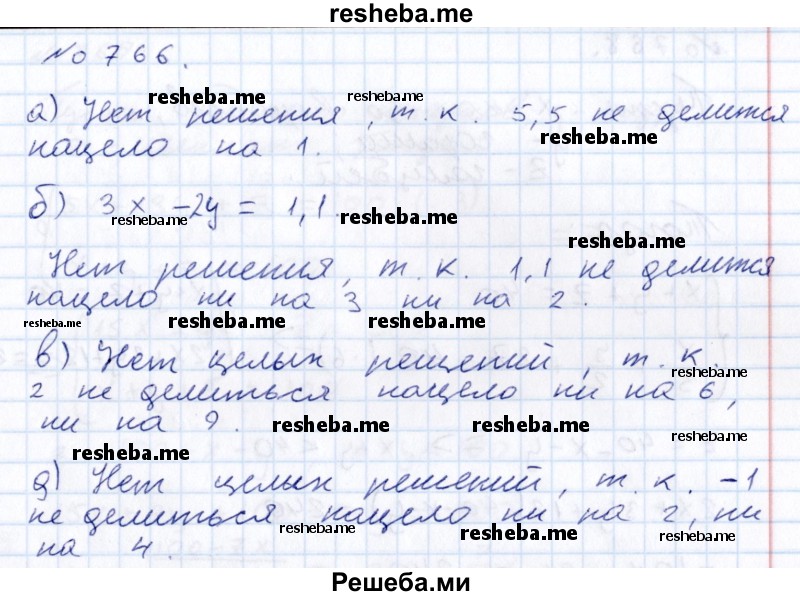 resheba.me
№ 766.
resheba.me resheba.me
а) Нет решения, т.к. 5,5 не делится
resheba.me
нацело на 1.
б) 3x - 2y = 1,1
resheba.me resheba.me
resheba.me
Нет решения, т.к. 1,1 не делится
нацело ни на 3 ни на 2.
resheba.me resheba.me resheba.me
в) Нет целых решений, т.к.
resheba.me
2 не делиться нацело ни на 6,
ни на 9.
resheba.me resheba.me
resheba.me
resheba.me
д) Нет целых решений, т.к. -1
не делиться нацело ни на 2, ни
resheba.me resheba.me resheba.me
на 4.
Решеба.ми